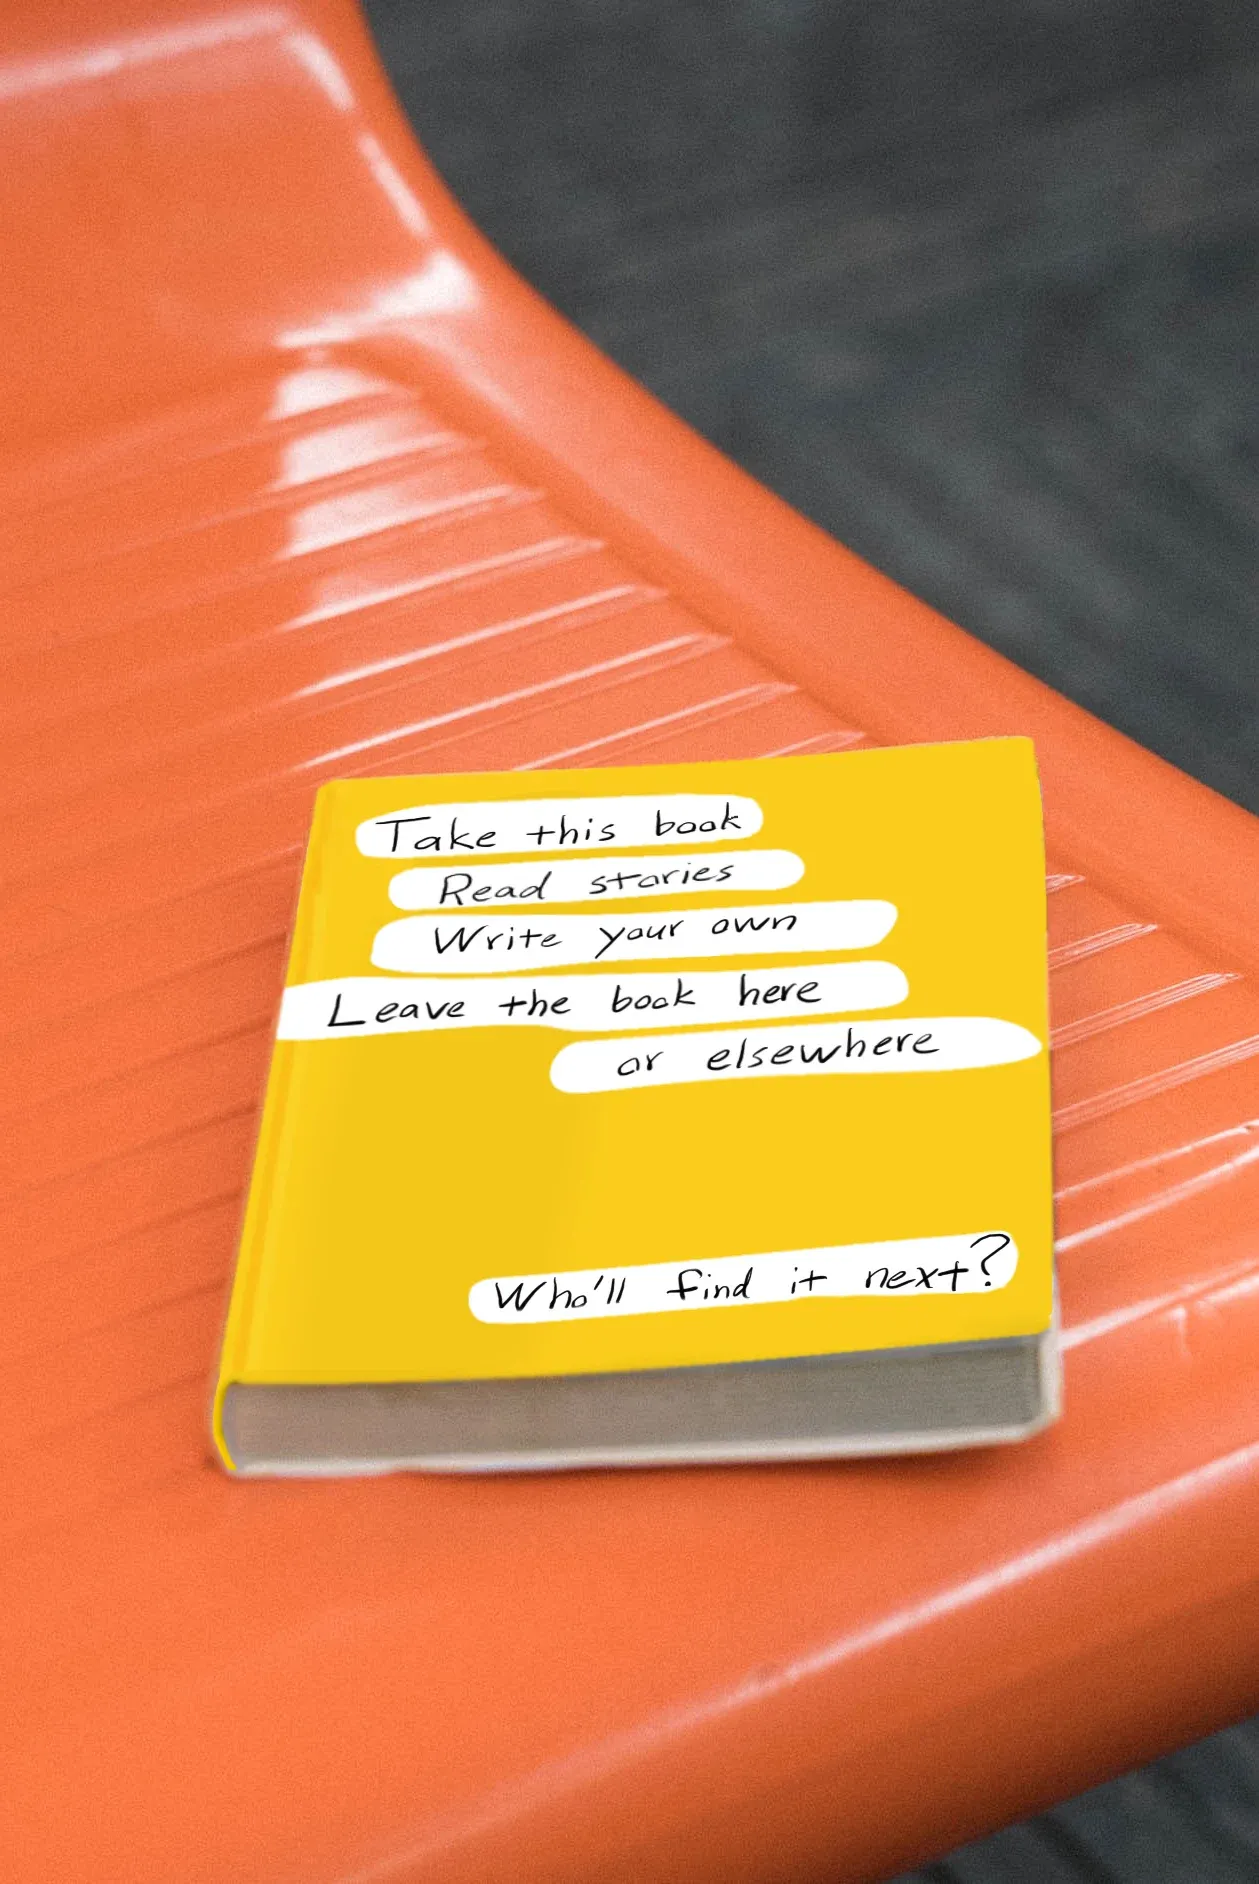 Take this book
Read stories
Write your own
Leave the book here
or elsewhere
Who'll find it next?